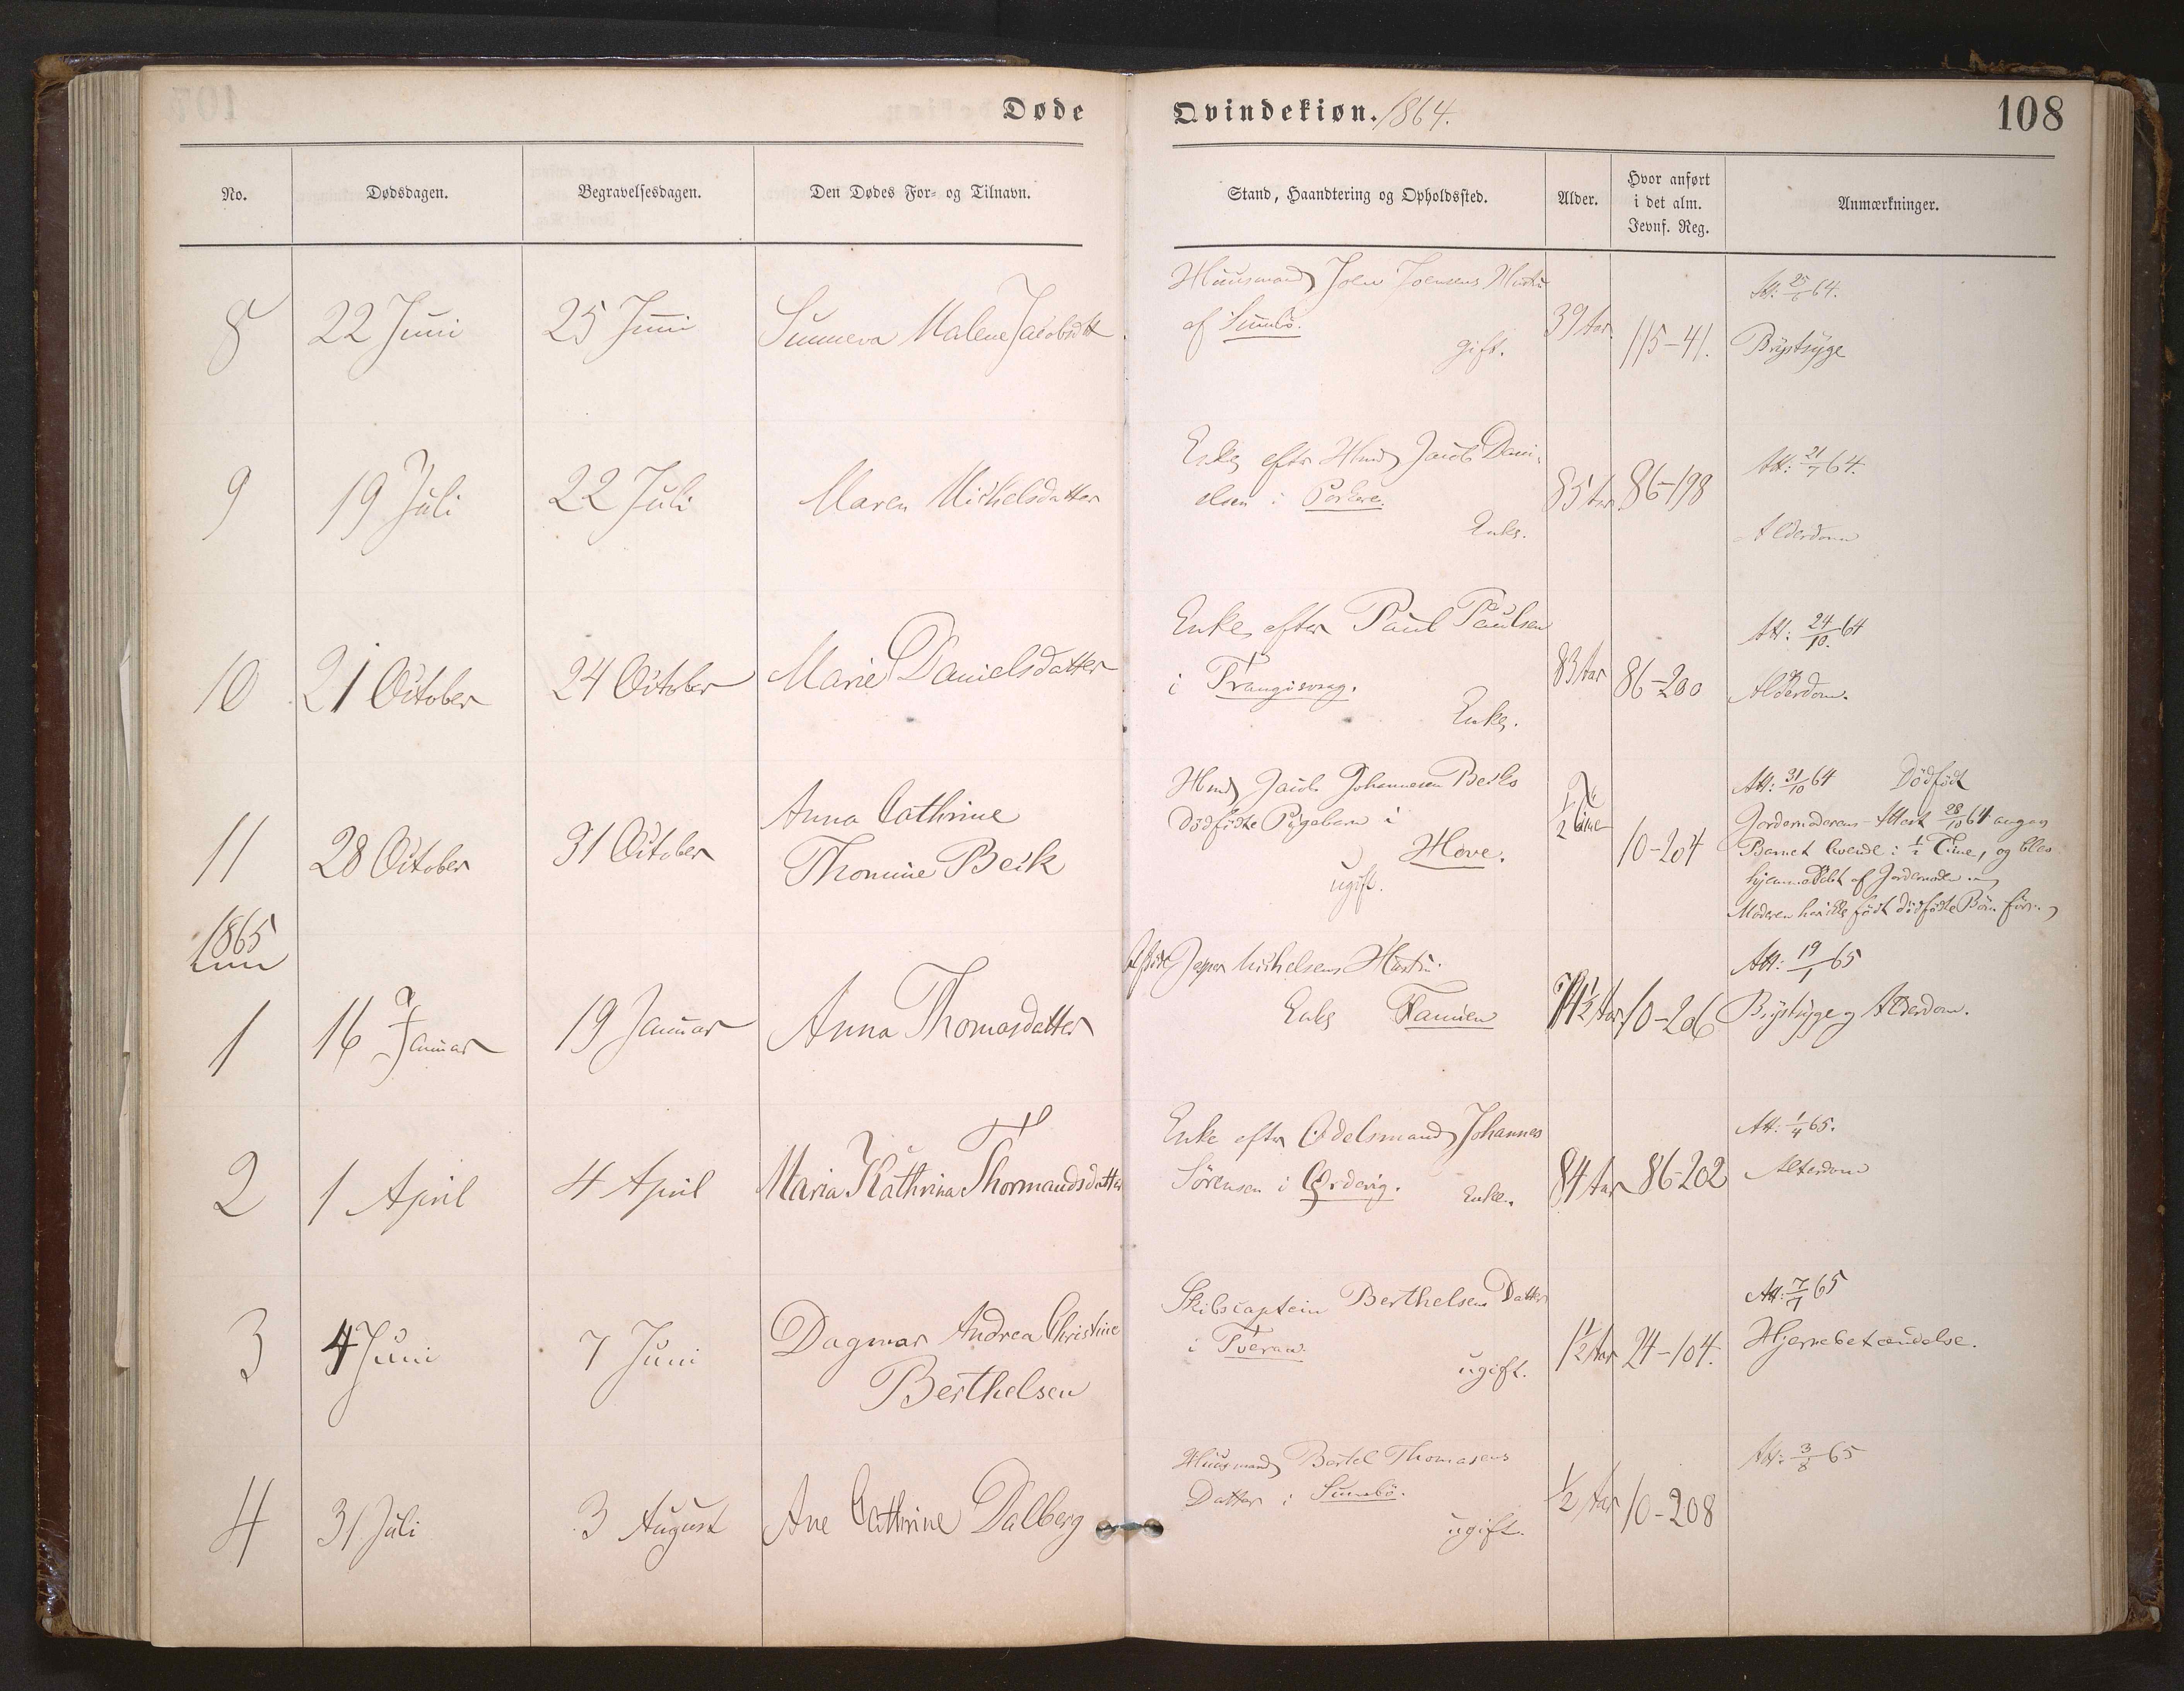 Døde Qvindekiøn. 1864. 108
No. Dødsdagen. Begravelsesdagen. Den Dødes For- og Tilnavn. Stand, Haandtering og Opholdssted. Alder. Hvor anført i det alm. Jevnf. Reg. Anmærkninger.
8 22 Juni 25 Juni Sunneva Malene Jacobsdtt
Huusmand Joen Joensens Hustru
af Sumbö.
gift.
39 Aar. 115-41.
Att. 25/6 64.
Brystsyge
9 19 Juli 22 Juli Maren Michelsdatter
Enke efter Hmd Jacob Dani-
elsen i Porkere.
Enke.
85 Aar 86-198
Att: 21/7 64.
Alderdom
10 21 October 24 October Marie Danielsdatter
Enke efter Paul Paulsen
i Trangisvaag.
Enke.
83 Aar 86-200
Att: 24/10. 64
Alderdom.
11 28 October 31 October Anna Cathrine
Thomine Beck
Hmd Jacob Johannesen Becks
dödfödte Pigebarn i
Hove.
ugift.
1/2 Time 10-204
Att: 31/10 64 Dödfödt
Jordemoderens Attest 28/10 64 angav
Barnet levende i 1/2 Time, og blev
hjemmedöbt af Jordemoder
Moderen har ikke födt dödfödte Börn för.
1865
1 16 Januar 19 Januar Anna Thomasdatter
Jesper Michelsens Hustru.
Enke Famien
74 1/2 Aar 10-206
Att: 19/1 65
Brystsyge og Alderdom.
2 1 April 4 April Maria Kathrina Thormandsdatter
Enke efter Odelsmand Johannes
Sörensen i Ördevig. Enke.
84 Aar 86-202
Att: 1/4 65.
Alderdom
3 4 Juni 7 Juni Dagmar Andrea Christine
Berthelsen
Skibscaptein Berthelsens Datter
i Tveraa.
ugift.
1 1/2 Aar 24-104.
Att: 7/7 65
Hjernebetændelse.
4 31 Juli 3 August Ane Cathrine Dalberg
Huusmand Bertel Thomasens
Datter i Sumbö.
ugift.
1/2 Aar 10-208
Att: 3/8 65